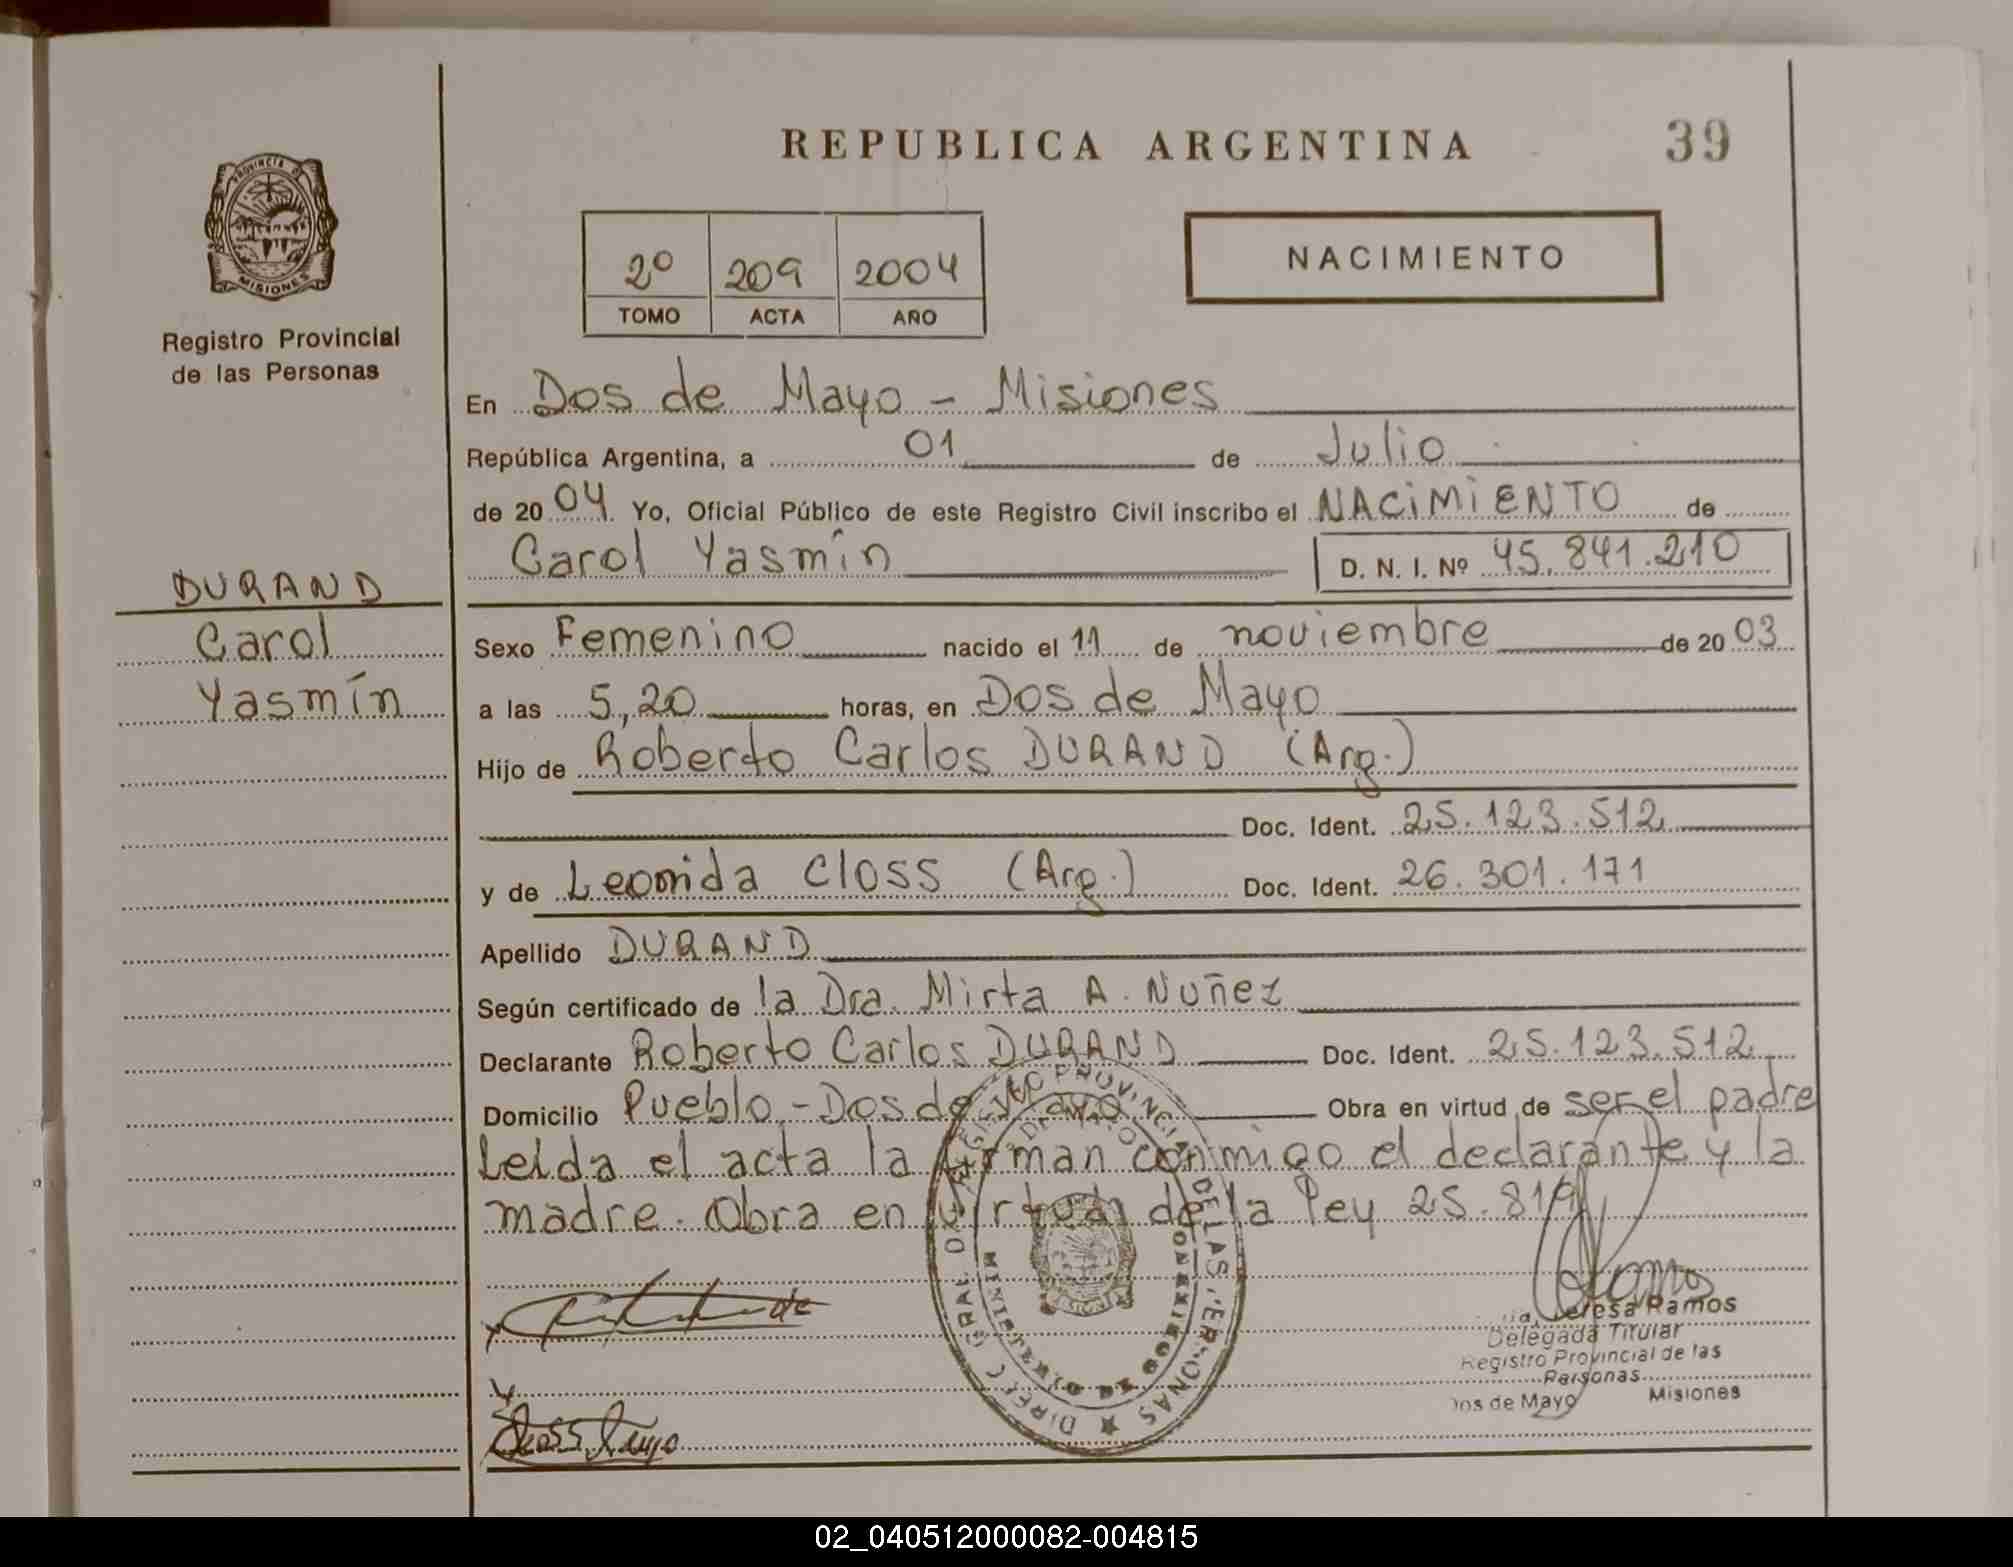 REPUBLICA ARGENTINA
39
PROVINCIA DE
MISIONES
Registro Provincial
de las Personas
2º 209 2004
TOMO ACTA AÑO
NACIMIENTO
En Dos de Mayo - Misiones
República Argentina, a 01 de Julio
de 2004 Yo, Oficial Público de este Registro Civil inscribo el NACIMIENTO de
Carol Yasmín D. N. I. Nº 45.841.210
DURAND
Carol
Yasmín
Sexo Femenino nacido el 11 de noviembre de 2003
a las 5,20 horas, en Dos de Mayo
Hijo de Roberto Carlos DURAND (Arg.)
Doc. Ident. 25.123.512
y de Leonida Closs (Arg.) Doc. Ident. 26.301.171
Apellido DURAND
Según certificado de la Dra. Mirta A. Nuñez
Declarante Roberto Carlos DURAND Doc. Ident. 25.123.512
Domicilio Pueblo - Dos de Mayo Obra en virtud de ser el padre
Leida el acta la firman conmigo el declarante y la
madre. Obra en virtud de la ley 25.819
Teresa Ramos
Delegada Titular
Registro Provincial de las
Personas
Dos de Mayo Misiones
02_040512000082-004815